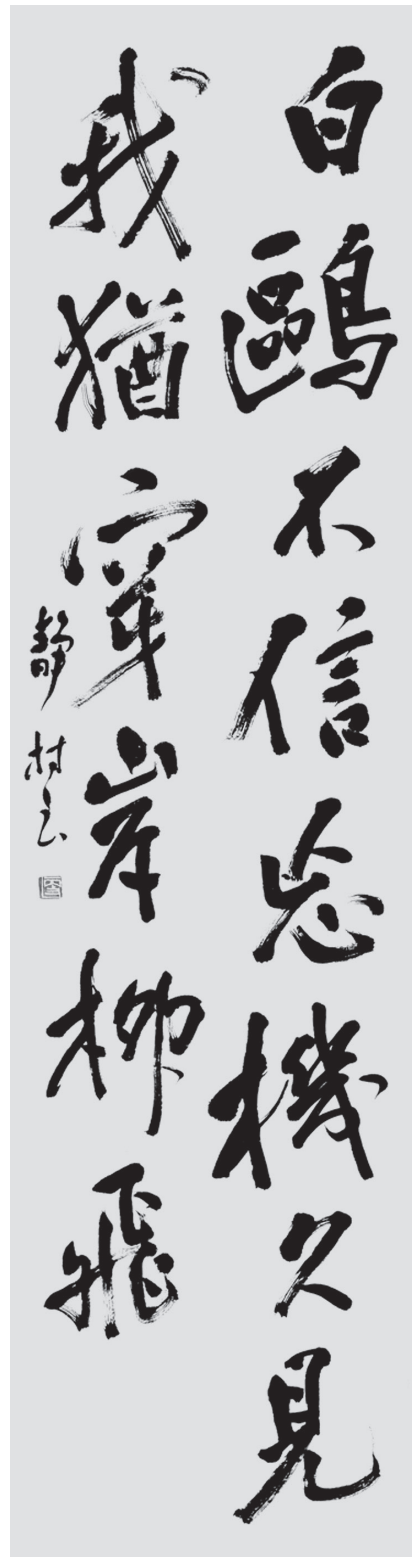 白鷗不信忘機久見
我猶穿岸柳飛
靜村書